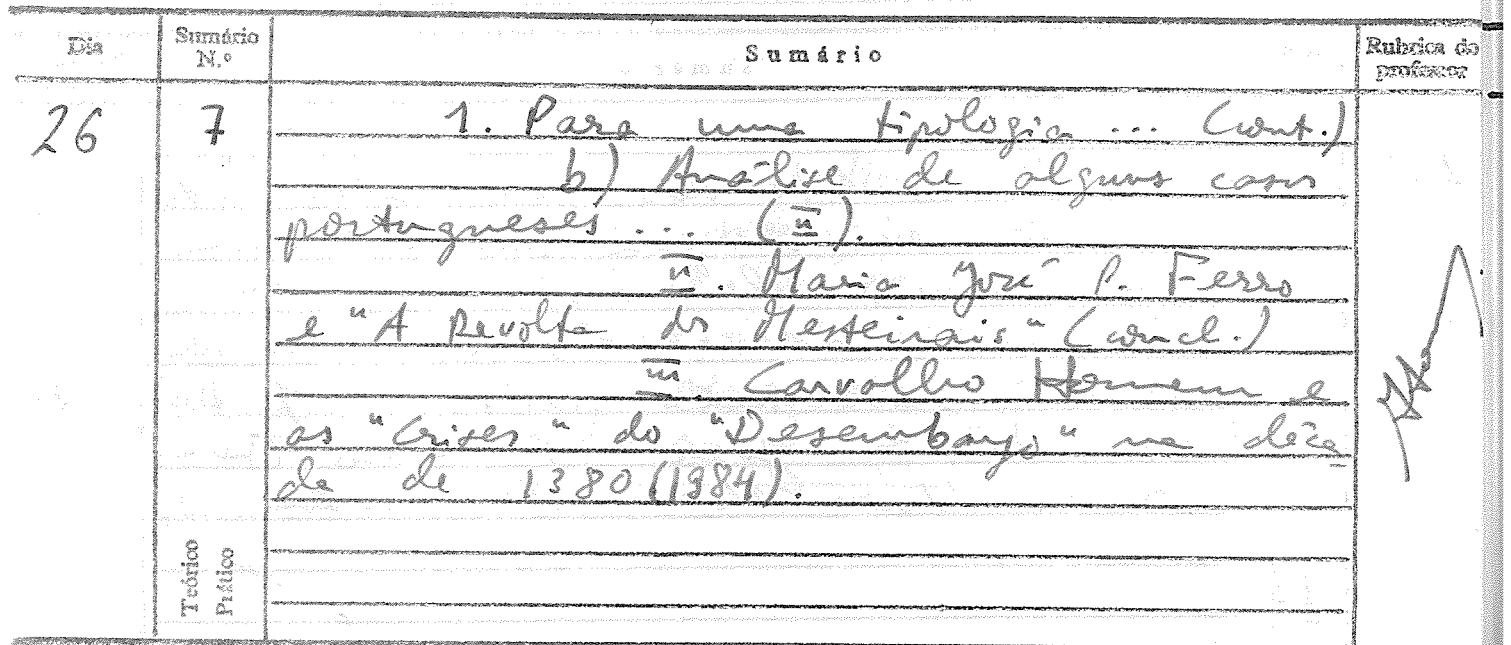 Dia
Sumário N.º
Sumário
Rubrica do professor
26
7
1. Para uma tipologia ... (cont.)
b) Análise de alguns casos
portugueses ... (II).
II. Maria José P. Ferro
e "A Revolta dos Mesteirais" (concl.)
III. Carvalho Homem e
as "crises" do "Desembargo" na déca
da de 1380 (1984).
Teórico
Prático